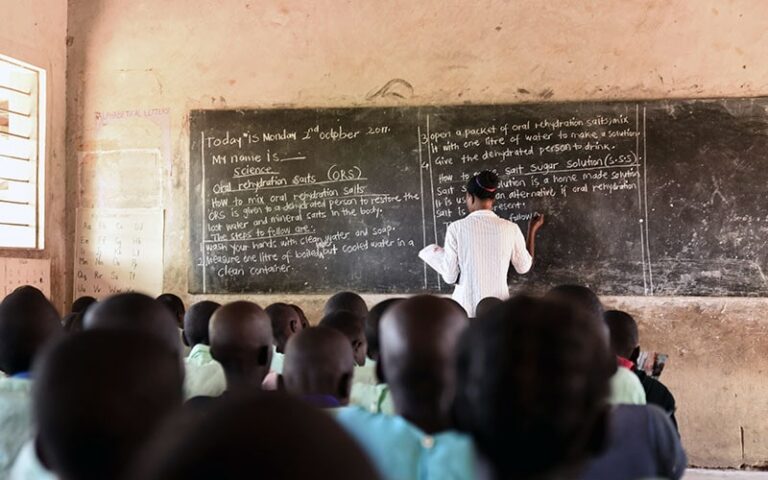 ALPHABETICAL LETTERS
Today is Monday 2nd october 2017.
My name is
Science
Oral rehydration salts (ORS)
How to mix oral rehydration salts
ORS is given to a dehydrated person to restore the
lost water and mineral salts in the body.
The steps to follow are:
wash your hands with clean water and soap.
2. Measure one litre of boiled but cooled water in a
clean container.
3. open a packet of oral rehydration salts, mix
it with one litre of water to make a solution
4. Give the dehydrated person to drink.
How to salt sugar solution (S.S.S)
Salt solution is a home made solution
It is an alternative if oral rehydration
Salt present
follow